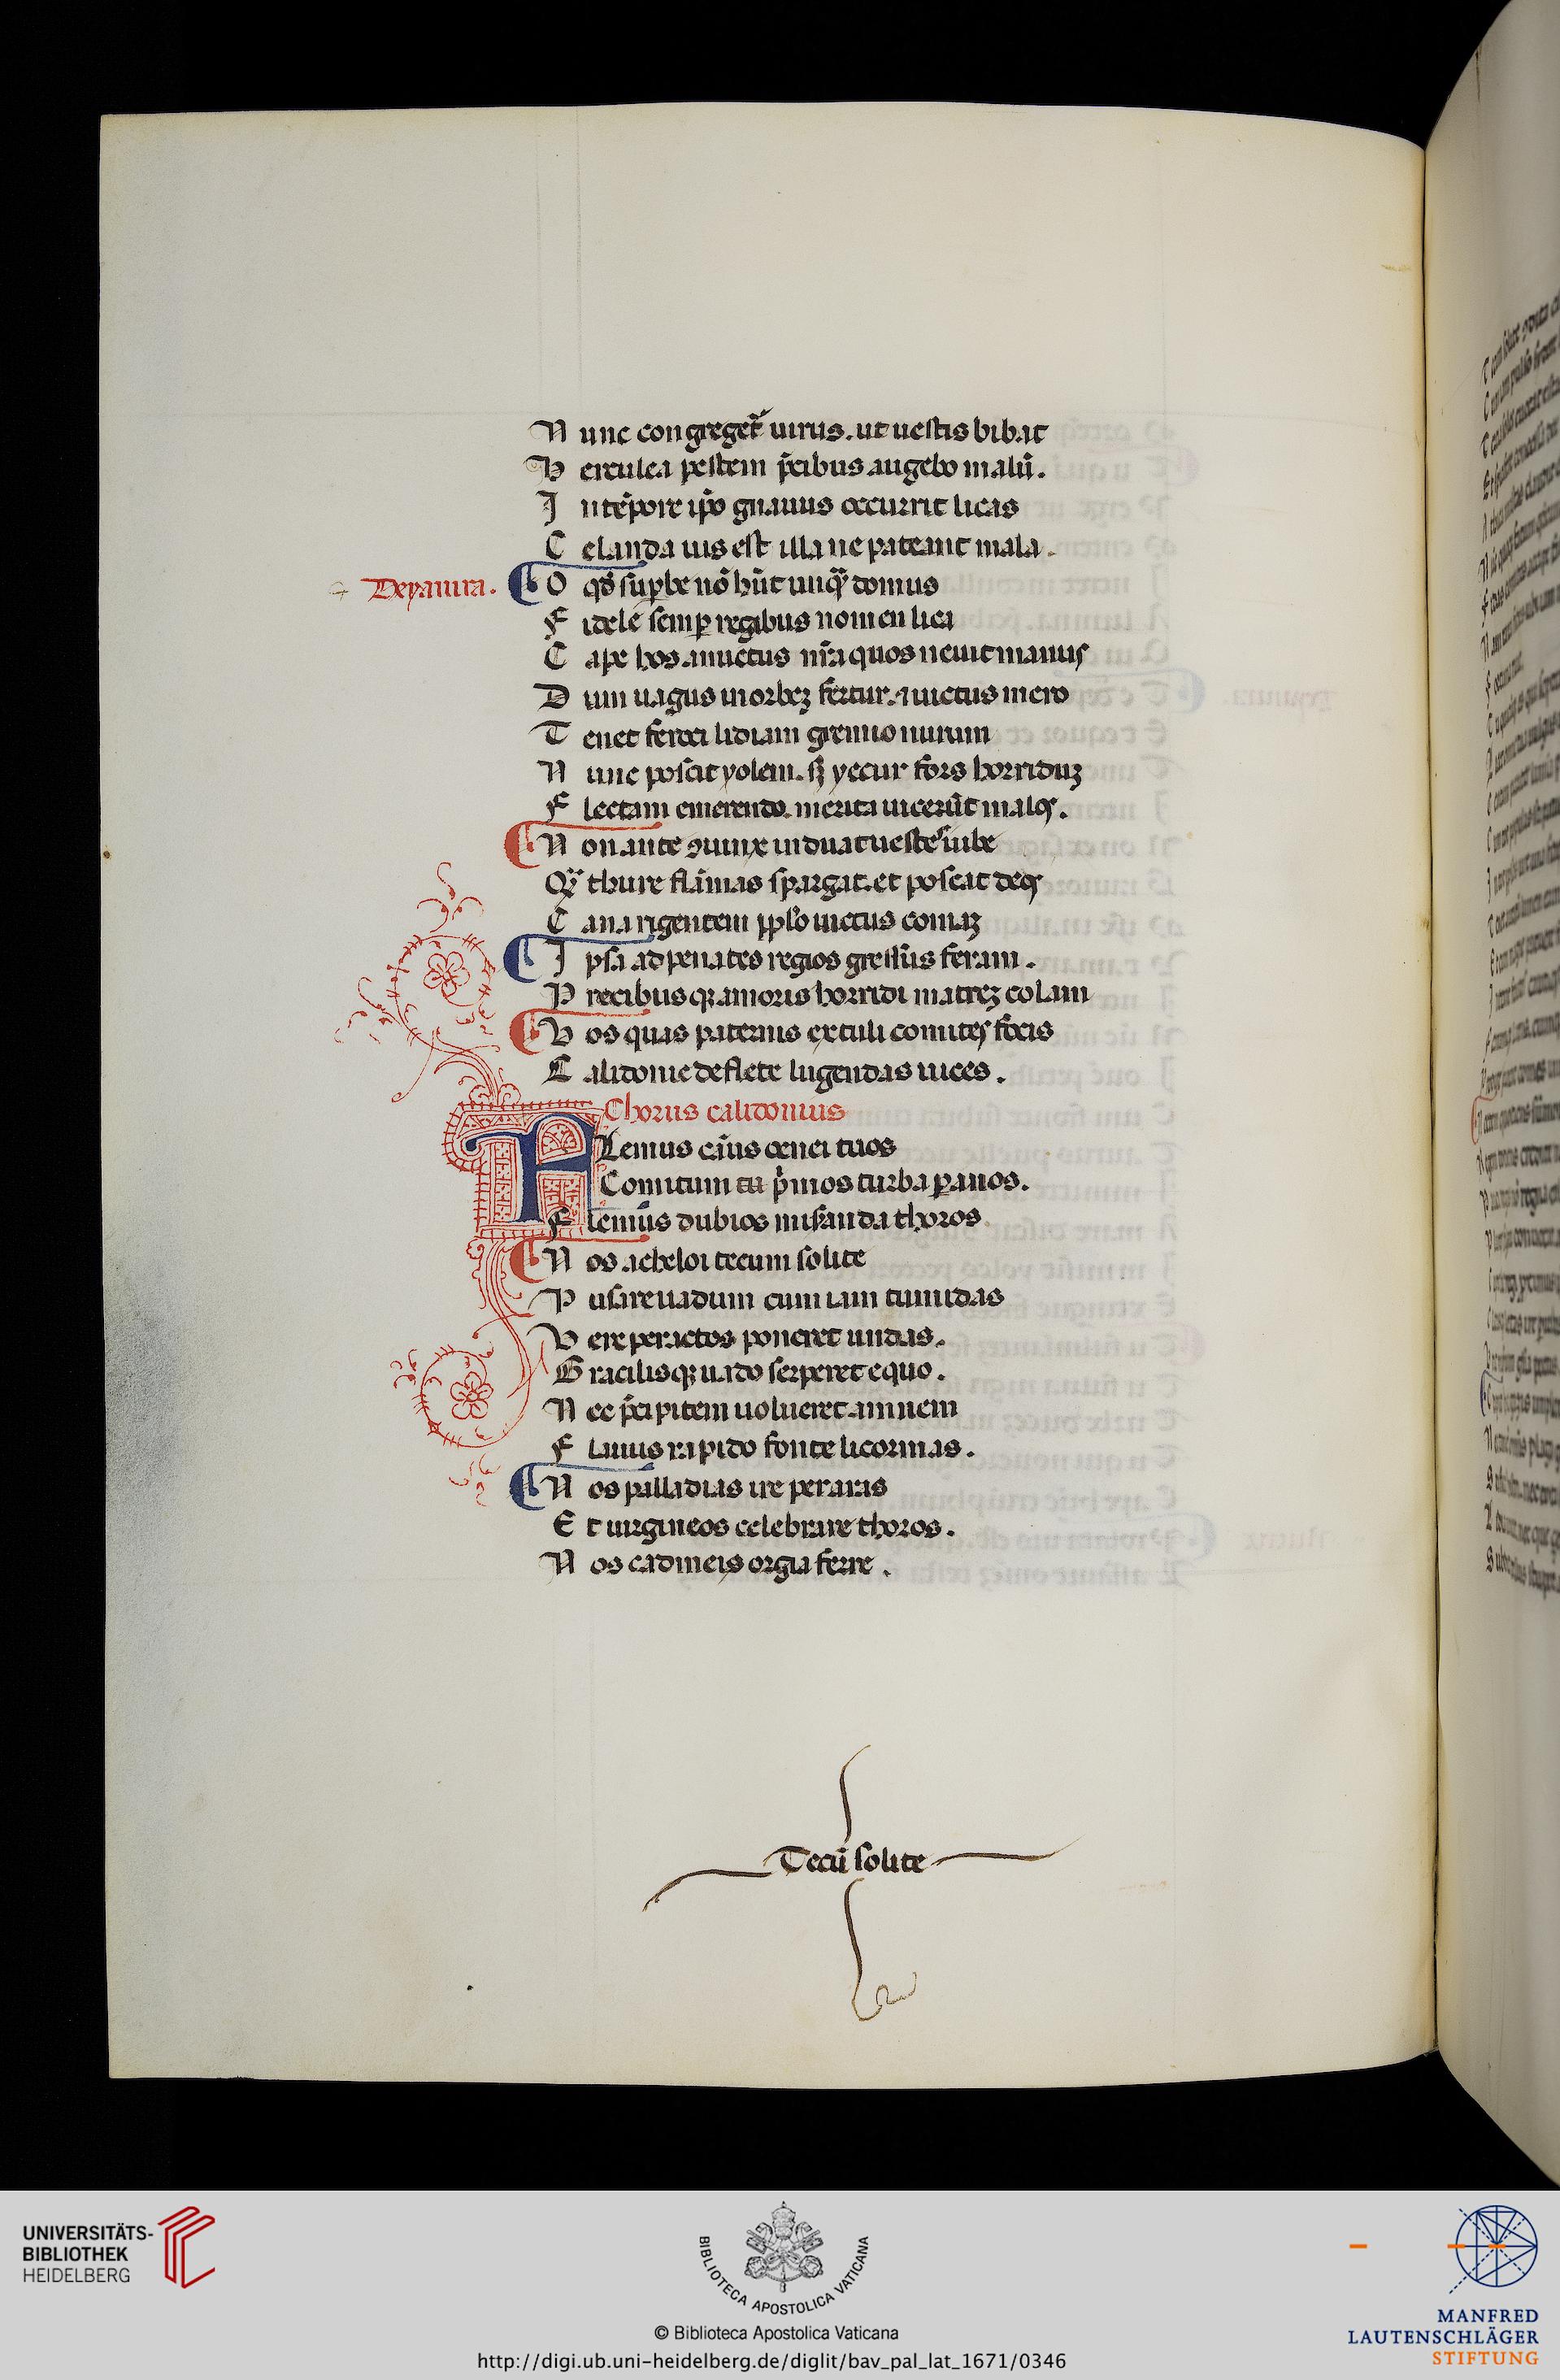 N unc congreget᷑ uirus. ut uestis bibat
H erculea pestem p̄cibus augebo malū.
I n tēpore ip̄o gnauus occurrit licas
C elanda uis est illa ne pateant mala.
Deyanira. O qđ suꝑbe nō hn̄t unq̄ domus
F idele semꝑ regibus nomen lica
C ape hos amictus nr̄a quos neuit manus
D um uagus in orbeꝫ fertur. ⁊ uictus mero
T enet feroci lidiam gremio nurum
N unc poscit yolem. sꝫ yecur fors horriduꝫ
F lectam emerendo. merita uicerūt malos.
N on ante ꝯiunx induat uestes iube
Qꝫ thure flāmas spargat. et poscat deos
C ana rigentem pplo uictus comaꝫ
I psa ad penates regios gressus feram.
P recibusqꝫ amoris horridi matreꝫ colam
V os quas paternis extuli comites focis
C alidonie deflete lugendas uices.
Chorus calidonius
F Lemus cāus oenei tuos
Comitum tu p̄mos turba ꝑ annos.
F lemus dubios miseranda thoros
N os acheloi tecum solite
P ulsare uadum cum iam tumidas
V ere peractos poneret undas.
G racilisqꝫ uado serperet equo.
N ec p̄cipitem uolueret amnem
F lauus rapido fonte licormas.
N os palladias ire per aras
E t uirgineos celebrare thoros.
N os cadmeis orgia ferre.
Tecū solite
UNIVERSITÄTS-
BIBLIOTHEK
HEIDELBERG
BIBLIOTECA APOSTOLICA VATICANA
© Biblioteca Apostolica Vaticana
http://digi.ub.uni-heidelberg.de/diglit/bav_pal_lat_1671/0346
MANFRED
LAUTENSCHLÄGER
STIFTUNG